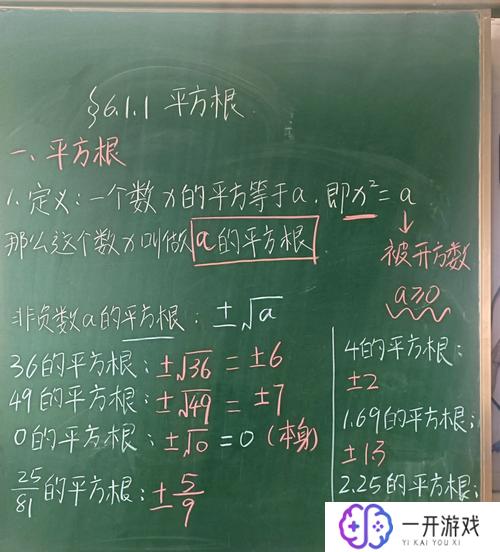 §6.1.1 平方根
一、平方根
1. 定义：一个数x的平方等于a，即x²=a
那么这个数x叫做a的平方根
被开方数
a≥0
非负数a的平方根：±√a
36的平方根：±√36 = ±6
49的平方根：±√49 = ±7
0的平方根：±√0 = 0（本身）
25/81的平方根：±5/9
4的平方根：
±2
1.69的平方根：
±13
2.25的平方根：
一开游戏
YI KAI YOU XI